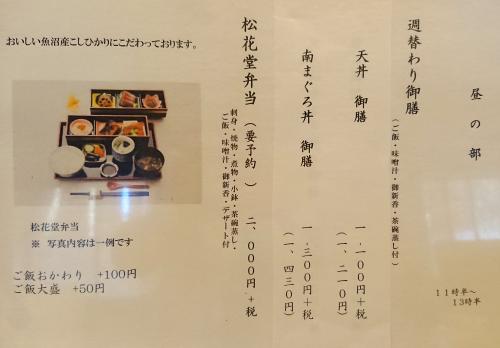 昼の部
11時半～
13時半
週替わり御膳
(ご飯・味噌汁・御新香・茶碗蒸し付)
天丼 御膳 一、一00円+税
(一、二一0円)
南まぐろ丼 御膳 一、三00円+税
(一、四三0円)
松花堂弁当 (要予約) 二、000円+税
刺身・焼物・煮物・小鉢・茶碗蒸し・
ご飯・味噌汁・御新香・デザート付
おいしい魚沼産こしひかりにこだわっております。
松花堂弁当
※ 写真内容は一例です
ご飯おかわり +100円
ご飯大盛 +50円